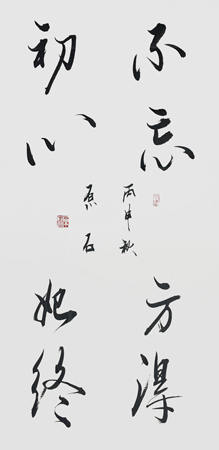 不忘
初心
方得
始终
丙申秋
原石